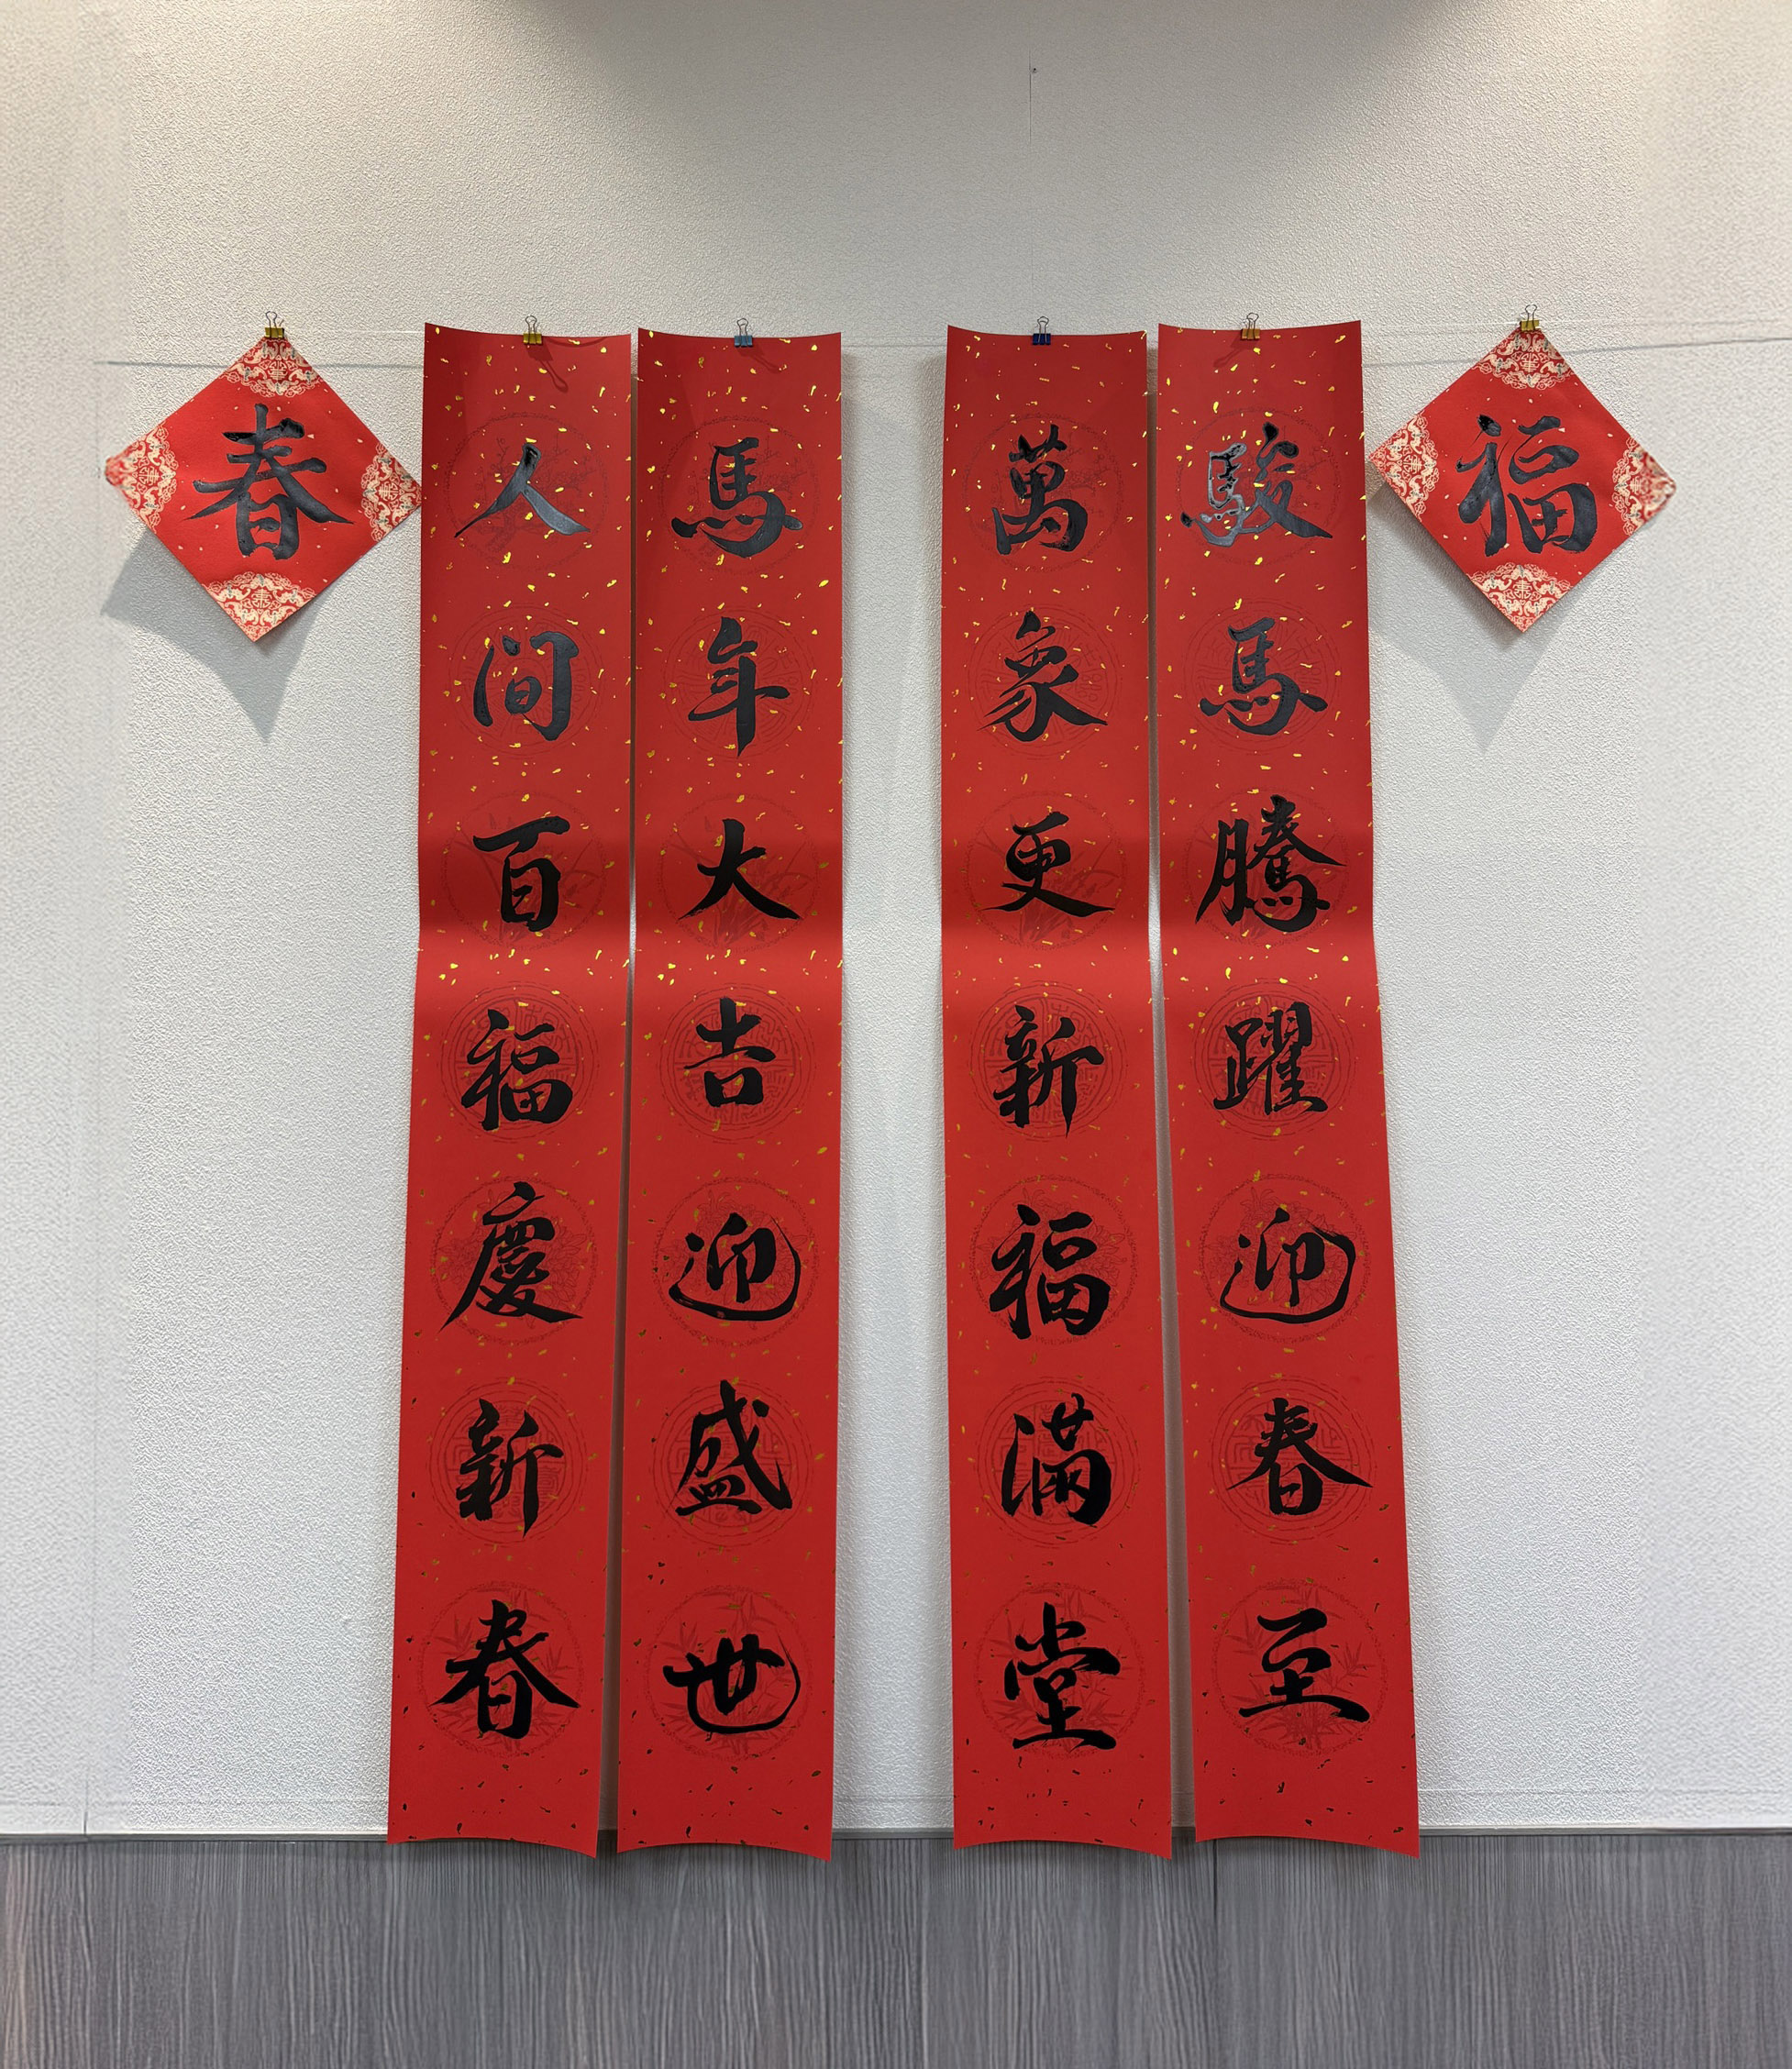 福
駿馬騰躍迎春至
萬象更新福滿堂
馬年大吉迎盛世
人间百福慶新春
春